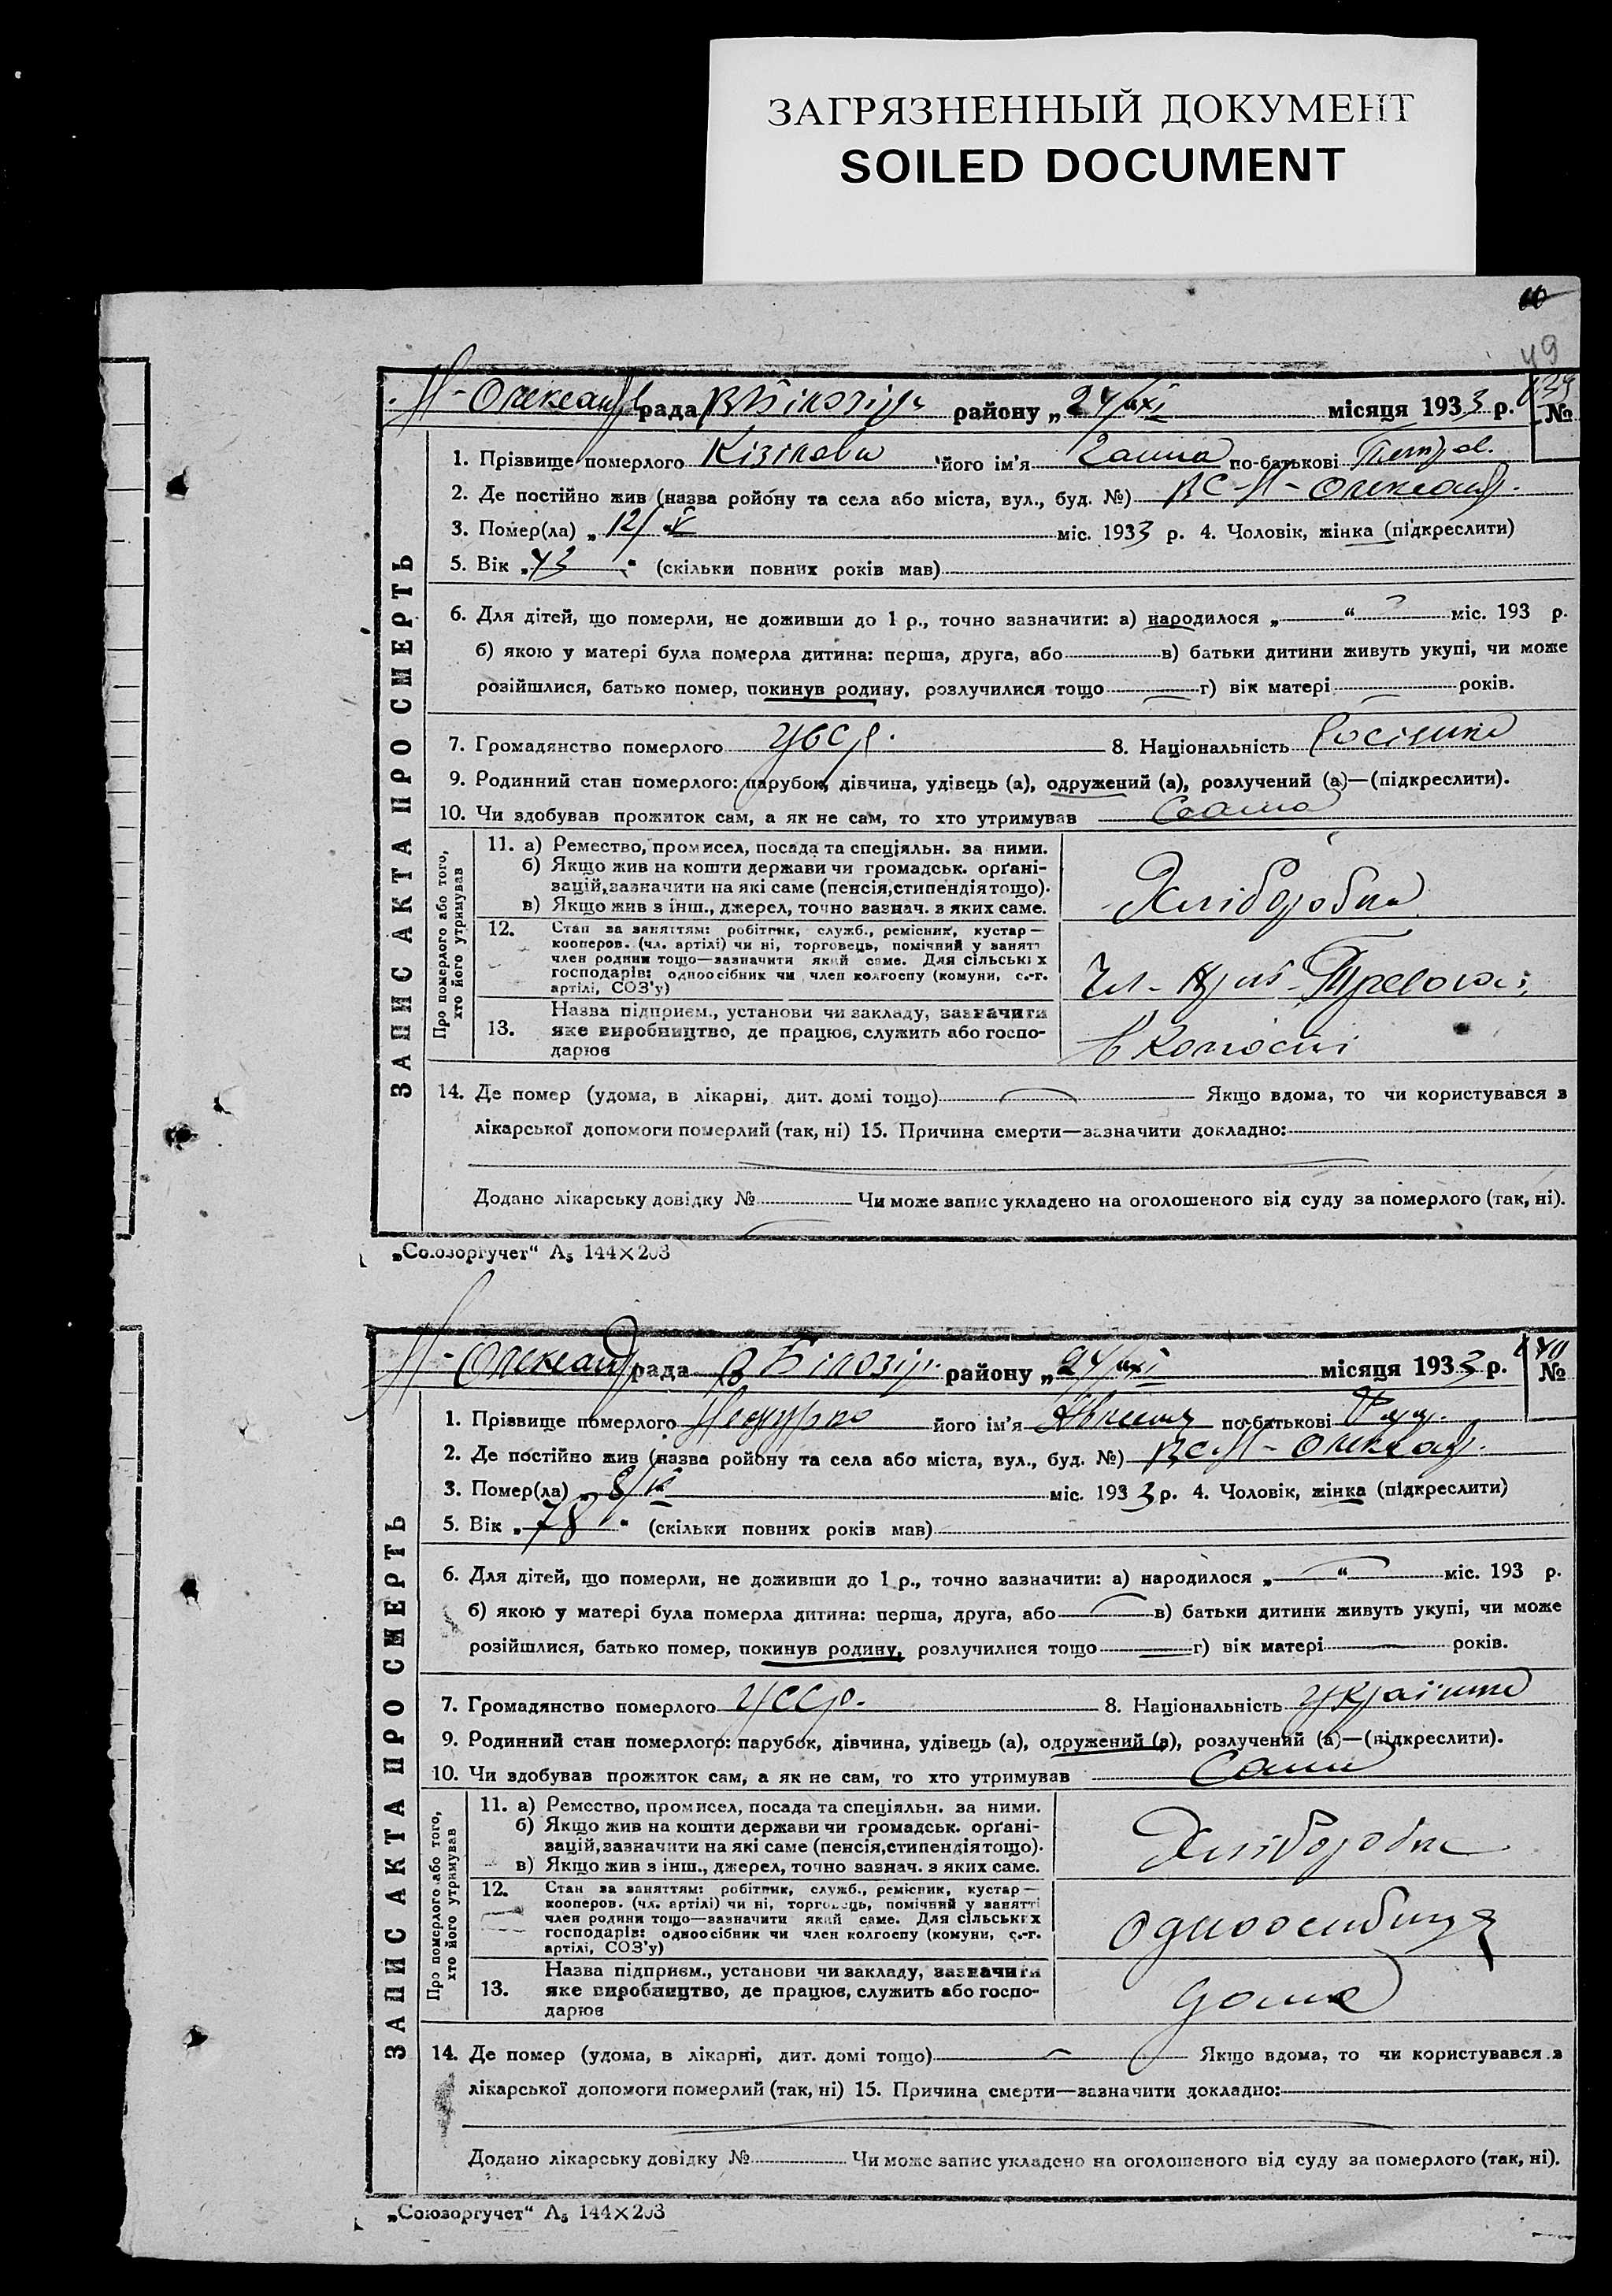 ЗАГРЯЗНЕННЫЙ ДОКУМЕНТ
SOILED DOCUMENT
49
Н-Олександр рада В Білозір району „24/XI місяця 1933 р. №
ЗАПИС АКТА ПРО СМЕРТЬ
1. Прізвище померлого його ім'я Ганна по-батькові Петров.
2. Де постійно жив (назва ройону та села або міста, вул., буд. №) Н-Олександ.
3. Помер(ла) „12/V міс. 1933 р. 4. Чоловік, жінка (підкреслити)
5. Вік „43" (скільки повних років мав)
6. Для дітей, що померли, не доживши до 1 р., точно зазначити: а) народилося „ “ міс. 193 р.
б) якою у матері була померла дитина: перша, друга, або в) батьки дитини живуть укупі, чи може
розійшлися, батько помер, покинув родину, розлучилися тощо г) вік матері років.
7. Громадянство померлого 8. Національність
9. Родинний стан померлого: парубок, дівчина, удівець (а), одружений (а), розлучений (а)—(підкреслити).
10. Чи здобував прожиток сам, а як не сам, то хто утримував Сама
Про померлого або того,
хто його утримував
11. а) Ремество, промисел, посада та спеціяльн. за ними.
б) Якщо жив на кошти держави чи громадськ. орґані-
зацій, зазначити на які саме (пенсія, стипендія тощо).
в) Якщо жив з інш., джерел, точно зазнач. з яких саме.
Хліборобка
12. Стан за заняттям: робітник, служб., ремісник, кустар—
кооперов. (чл. артілі) чи ні, торговець, помічний у занятті
член родини тощо—зазначити який саме. Для сільських
господарів: одноосібник чи член колгоспу (комуни, с.-г.
артілі, СОЗ'у)
13. Назва підприєм., установи чи закладу, зазначити
яке виробництво, де працює, служить або госпо-
дарює
в колгоспі
14. Де помер (удома, в лікарні, дит. домі тощо) Якщо вдома, то чи користувався з
лікарської допомоги померлий (так, ні) 15. Причина смерти—зазначити докладно:
Додано лікарську довідку № Чи може запис укладено на оголошеного від суду за померлого (так, ні).
„Союзоргучет“ А5 144×203
Н-Олександр рада В Білозір. району „24/XI місяця 1933 р. №
ЗАПИС АКТА ПРО СМЕРТЬ
1. Прізвище померлого його ім'я по-батькові
2. Де постійно жив (назва ройону та села або міста, вул., буд. №) Н-Олександ.
3. Помер(ла) міс. 1933 р. 4. Чоловік, жінка (підкреслити)
5. Вік „78" (скільки повних років мав)
6. Для дітей, що померли, не доживши до 1 р., точно зазначити: а) народилося „ “ міс. 193 р.
б) якою у матері була померла дитина: перша, друга, або в) батьки дитини живуть укупі, чи може
розійшлися, батько помер, покинув родину, розлучилися тощо г) вік матері років.
7. Громадянство померлого УССР. 8. Національність Українка
9. Родинний стан померлого: парубок, дівчина, удівець (а), одружений (а), розлучений (а)—(підкреслити).
10. Чи здобував прожиток сам, а як не сам, то хто утримував Сама
Про померлого або того,
хто його утримував
11. а) Ремество, промисел, посада та спеціяльн. за ними.
б) Якщо жив на кошти держави чи громадськ. орґані-
зацій, зазначити на які саме (пенсія, стипендія тощо).
в) Якщо жив з інш., джерел, точно зазнач. з яких саме.
Хліборобка
12. Стан за заняттям: робітник, служб., ремісник, кустар—
кооперов. (чл. артілі) чи ні, торговець, помічний у занятті
член родини тощо—зазначити який саме. Для сільських
господарів: одноосібник чи член колгоспу (комуни, с.-г.
артілі, СОЗ'у)
13. Назва підприєм., установи чи закладу, зазначити
яке виробництво, де працює, служить або госпо-
дарює
дома
14. Де помер (удома, в лікарні, дит. домі тощо) Якщо вдома, то чи користувався з
лікарської допомоги померлий (так, ні) 15. Причина смерти—зазначити докладно:
Додано лікарську довідку № Чи може запис укладено на оголошеного від суду за померлого (так, ні).
„Союзоргучет“ А5 144×203